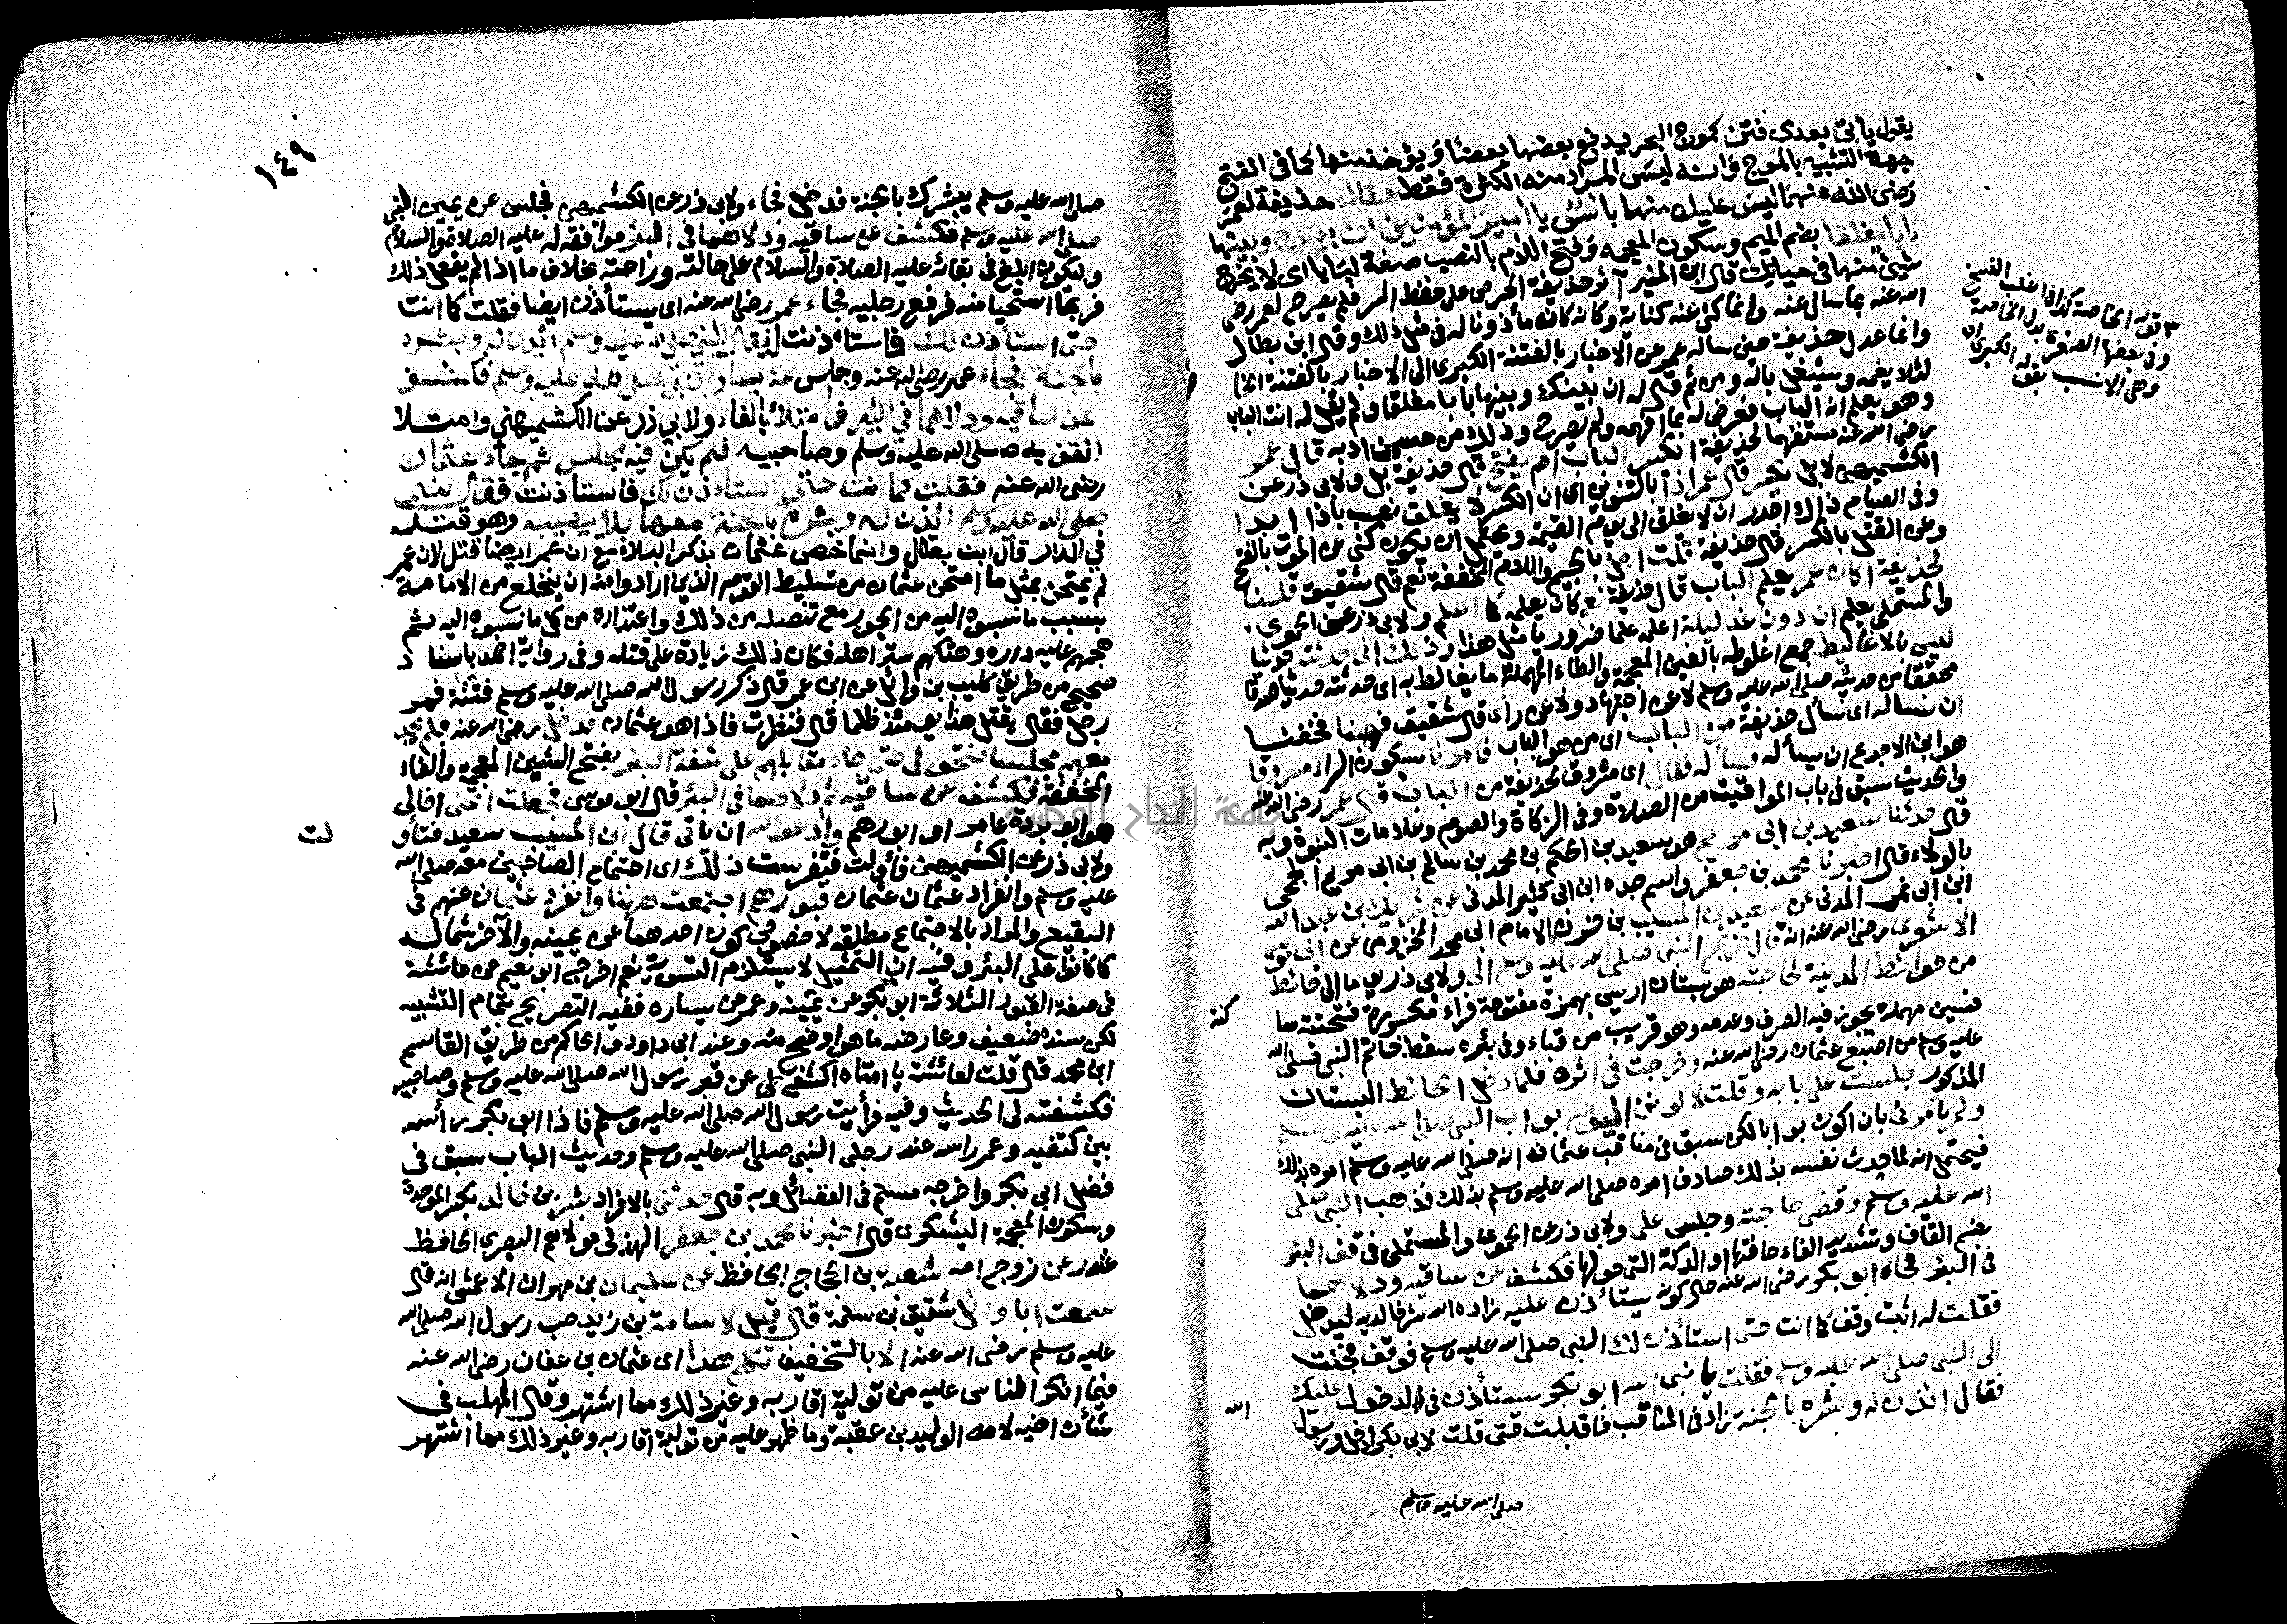 يقول يأتي بعدي فتن كموج البحر يدفع بعضها بعضا ويؤخذ منها كما في الفتح
جهة التشبيه بالموج وانه ليس المراد منه الكثرة فقط فقال حذيفة لعمر
رضى الله عنهما ليس عليك منها بأس يا أمير المؤمنين ان بينك وبينها
بابا مغلقا بضم الميم وسكون المعجمة وفتح اللام بالنصب صفة لبابا اى لا يخرج
شيئ منها في حياتك قال ابن المنير آثر حذيفة الحرص على حفظ السر فلم يصرح لعمر رضى
الله عنه بما سال عنه وانما كنى عنه كناية وكانه كان مأذونا له في مثل ذلك وقال ابن بطال
وانما عدل حذيفة حين ساله عمر عن الاخبار بالفتنة الكبرى الى الاخبار بالفتنة الخا
لئلا يغمه ويشتغل باله ومن ثم قال له ان بينك وبينها بابا مغلقا ولم يقل له انت الباب
وهو يعلم انه الباب فعرض له بما افهمه ولم يصرح وذلك من حسن ادبه قال عمر
رضى الله عنه مستفهما لحذيفة ايكسر الباب ام يفتح قال حذيفة بل ولابى ذر عن
الكشميهنى لا بل يكسر قال عمر اذا بالتنوين اى ان انكسر لا يغلق نصب باذا ابدا
وفي الصيام ذاك اجدر ان لا يغلق الى يوم القيمة ويحتمل ان يكون كنى عن الموت بالفتح
وعن القتل بالكسر قال حذيفة قلت اجل بالجيم واللام المخففة نعم قال شقيق قلنا
لحذيفة اكان عمر يعلم الباب قال حذيفة نعم كان يعلمه كما اعلم ولابى ذر عن الحموى
والمستملى يعلم ان دون غد ليلة اعلمه علما ضروريا مثل هذا وذلك انى حدثته حديثا
ليس بالاغاليط جمع اغلوطه بالغين المعجمة والطاء المهملة ما يغالط به اى حدثته حديثا صدقا
محققا من حديثه صلى الله عليه وسلم لا عن اجتهاد ولا عن رأى قال شقيق فهبنا فخفنا
ان نساله اى نسأل حذيفة من الباب اى من هو الباب فامرنا بسكون الراء مسروقا
هو ابن الاجدع ان يسأله فسأله فقال اى مسروق لحذيفة من الباب قال عمر رضى الله عنه
والحديث سبق في باب المواقيت من الصلاة وفى الزكاة والصوم وعلامات النبوة وبه
قال حدثنا سعيد بن ابى مريم هو سعيد بن الحكم بن محمد بن سالم بن ابى مريم الجمحى
بالولاء قال اخبرنا محمد بن جعفر واسم جده ابن ابى كثير المدنى عن شريك بن عبد الله
ابن ابى نمر المدنى عن سعيد بن المسيب بن حزن الامام ابى محمد المخزومى عن ابى موسى
الاشعرى رضى الله عنه انه قال خرج النبى صلى الله عليه وسلم الى ولابى ذر يوما الى حائط
من حوائط المدينة لحاجته هو بستان اريس بهمزة مفتوحة فراء مكسورة فتحتية سا
فسين مهملة يجوز فيه الصرف وعدمه وهو قريب من قباء وفى بئره سقط خاتم النبى صلى الله
عليه وسلم من اصبع عثمان رضى الله عنه وخرجت في اثره فلما دخل الحائط البستان
المذكور جلست على بابه وقلت لاكونن اليوم بواب النبى صلى الله عليه وسلم
ولم يأمرنى بان اكون بوابا لكن سبق في مناقب عثمان انه صلى الله عليه وسلم امره بذلك
فيحتمل انه لما حدث نفسه بذلك صادف امره صلى الله عليه وسلم بذلك فذهب النبى صلى
الله عليه وسلم وقضى حاجته وجلس على ولابى ذر عن الحموى والمستملى في قف البئر
بضم القاف وتشديد الفاء حافتها او الدكة التى حولها فكشف عن ساقيه ودلاهما
في البئر فجاء ابو بكر رضى الله عنه حال كونه يستأذن عليه زاده الله شرفا لديه ليدخل
فقلت له اثبت وقف كما انت حتى استأذن لك النبى صلى الله عليه وسلم فوقف فجئت
الى النبى صلى الله عليه وسلم فقلت يا نبى الله ابو بكر يستأذن في الدخول عليك
فقال ائذن له وبشره بالجنة زاد في المناقب فاقبلت حتى قلت لابى بكر ادخل ورسول
الله
صلى الله عليه وسلم
٣ قوله الخاصة كذا في اغلب النسخ
وفى بعضها الصغرى بدل الخاصة
وهى الانسب بقوله الكبرى اه
كنة
١٤٩
صلى الله عليه وسلم يبشرك بالجنة فدخل فجاء ولابى ذر عن الكشميهنى فجلس عن يمين النبى
صلى الله عليه وسلم فكشف عن ساقيه ودلاهما في البئر موافقة له عليه الصلاة والسلام
وليكون ابلغ في بقائه عليه الصلاة والسلام على حالته وراحته بخلاف ما اذا لم يفعل ذلك
فربما استحيا منه فرفع رجليه فجاء عمر رضى الله عنه اى يستأذن ايضا فقلت كما انت
حتى استأذن لك فاستأذنت فقال النبى صلى الله عليه وسلم ائذن له وبشره
بالجنة فجاء عمر رضى الله عنه وجلس عن يسار النبى صلى الله عليه وسلم فكشف
عن ساقيه ودلاهما في البئر فامتلأ بالفاء ولابي ذر عن الكشميهنى وامتلا
القف به صلى الله عليه وسلم وصاحبيه فلم يكن فيه مجلس ثم جاء عثمان
رضى الله عنه فقلت كما انت حتى استاذن لك فاستأذنت فقال النبى
صلى الله عليه وسلم ائذن له وبشره بالجنة معها بلا يصيبه وهو قتله
في الدار قال ابن بطال وانما خص عثمان بذكر البلاء مع ان عمر ايضا قتل لان عمر
لم يمتحن بمثل ما امتحن عثمان من تسليط القوم الذين ارادوا منه ان ينخلع من الامامة
بسبب ما نسبوه اليه من الجور مع تنصله من ذلك واعتذاره من كل ما نسبوه اليه ثم
هجمهم عليه داره وهتكهم ستر اهله فكان ذلك زيادة على قتله وفى رواية احمد باسناد
صحيح من طريق كليب بن وائل عن ابن عمر قال ذكر رسول الله صلى الله عليه وسلم فتنة فمر
رجل فقال يقتل هذا يومئذ ظلما قال فنظرت فاذا هو عثمان فدخل رضى الله عنه فلم يجد
معهم مجلسا فتحول حتى جاء مقابلهم على شفة البئر بفتح الشين المعجمة والفاء
المخففة فكشف عن ساقيه ثم دلاهما في البئر قال ابو موسى فجعلت اتمنى اخا لى
هو ابو بردة عامر او ابو رهم وادعو الله ان ياتى قال ابن المسيب سعيد فتأو
لت
ولابى ذر عن الكشميهنى فأولت فتفرست ذلك اى اجتماع الصاحبين معه صلى الله
عليه وسلم وانفراد عثمان قبورهم اجتمعت ههنا وانفرد عثمان عنهم في
البقيع والمراد بالاجتماع مطلقه لا خصوص كون احدهما عن يمينه والآخر شماله
كما كانوا على البئر وفيه ان التمثيل لا يستلزم التسوية نعم اخرج ابو نعيم عن عائشة
في صفة القبور الثلاثة ابو بكر عن يمينه وعمر عن يساره ففيه التصريح بتمام التشبيه
لكن سنده ضعيف وعارضه ما هو اوضح منه وعند ابى داود والحاكم من طريق القاسم
ابن محمد قال قلت لعائشة يا امتاه اكشفى لى عن قبر رسول الله صلى الله عليه وسلم وصاحبيه
فكشفته لى الحديث وفيه فرأيت رسول الله صلى الله عليه وسلم فاذا ابو بكر راسه
بين كتفيه وعمر راسه عند رجلى النبى صلى الله عليه وسلم وحديث الباب سبق في
فضل ابى بكر واخرجه مسلم في الفضائل وبه قال حدثنى بالافراد بشر بن خالد بكسر الموحدة
وسكون المعجمة اليشكرى قال اخبرنا محمد بن جعفر الهذلى مولاهم البصرى الحافظ
غندر عن زوج امه شعبة بن الحجاج الحافظ عن سليمان بن مهران الاعمش انه قال
سمعت ابا وائل شقيق بن سلمة قال قيل لاسامة بن زيد حب رسول الله صلى الله
عليه وسلم رضى الله عنه الا بالتخفيف تكلم هذا اى عثمان بن عفان رضى الله عنه
فيما انكر الناس عليه من تولية اقاربه وغير ذلك مما اشتهر وقال المهلب في
شأن اخيه لامه الوليد بن عقبة وما ظهر عليه من تولية اقاربه وغير ذلك مما اشتهر